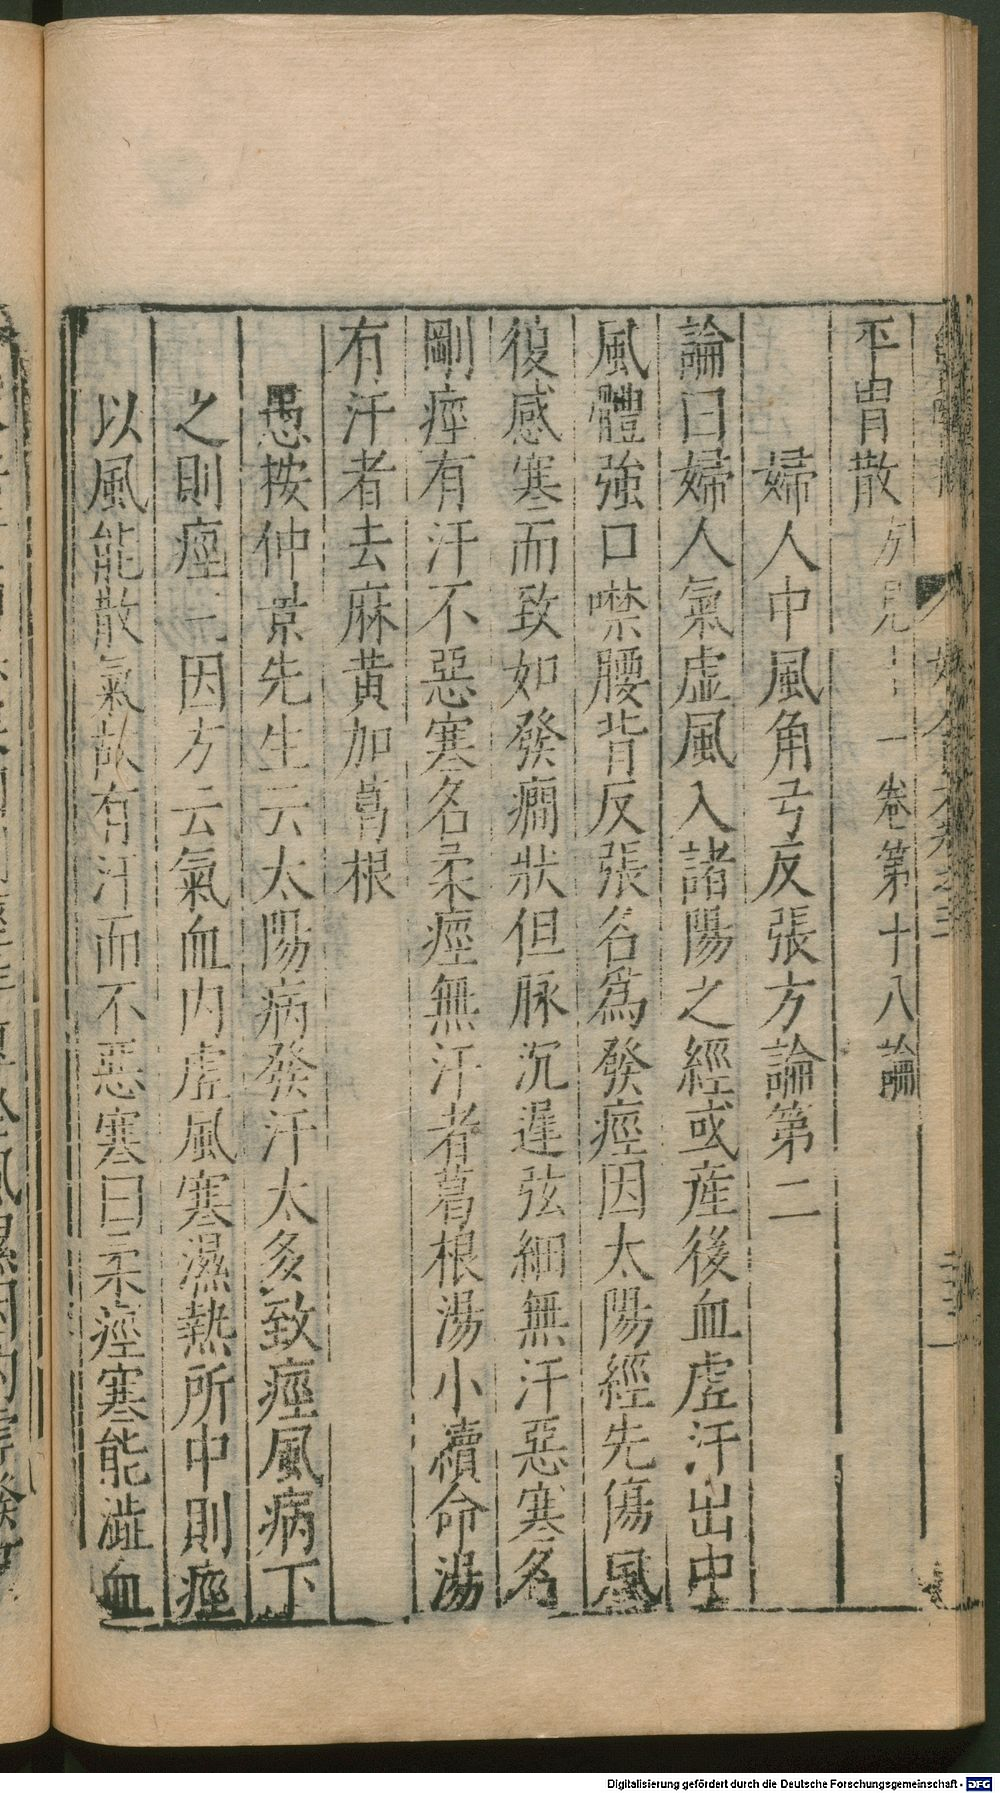 平胃散方見二十一卷第十八論
婦人中風角弓反張方論第二
論曰婦人氣虛風入諸陽之經或産後血虛汗出中
風體強口噤腰背反張名爲發痙因太陽經先傷風
復感寒而致如發癇狀但脉沉遲弦細無汗惡寒名
剛痙有汗不惡寒名柔痙無汗者葛根湯小續命湯
有汗者去麻黄加葛根
愚按仲景先生云太陽病發汗太多致痙風病下
之則痙三因方云氣血内虛風寒濕熱所中則痙
以風能散氣故有汗而不惡寒曰柔痙寒能澁血
Digitalisierung gefördert durch die Deutsche Forschungsgemeinschaft - DFG